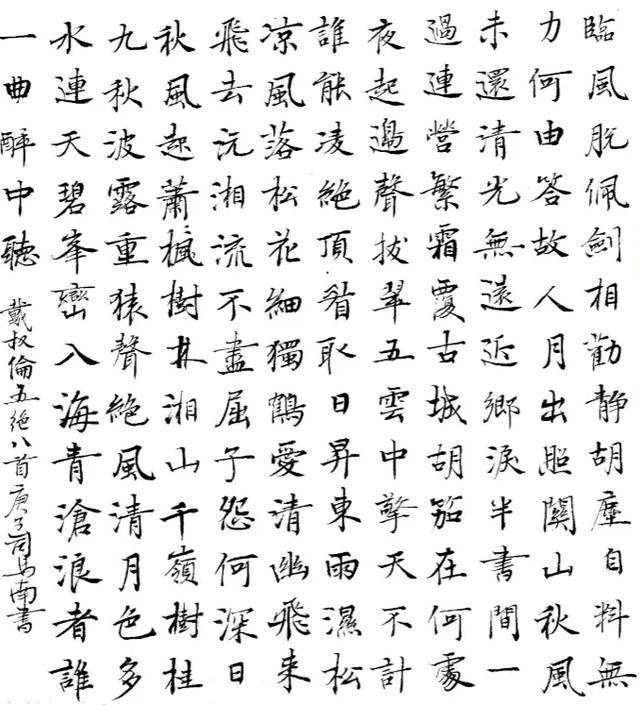 臨風脫佩劍相勸靜胡塵自料無
力何由答故人月出照關山秋風
未還清光無遠近鄉淚半書間一
過連營繁霜覆古城胡笳在何處
夜起邊聲拔翠五雲中擎天不計
誰能凌絕頂看取日昇東雨濕松
涼風落松花細獨鶴愛清幽飛来
飛去沅湘流不盡屈子怨何深日
秋風起蕭々楓樹林湘山千嶺樹桂
九秋波露重猿聲絕風清月色多
水連天碧峯巒入海青滄浪者誰
一曲醉中聽 戴叔倫五絕八首庚子司馬南書